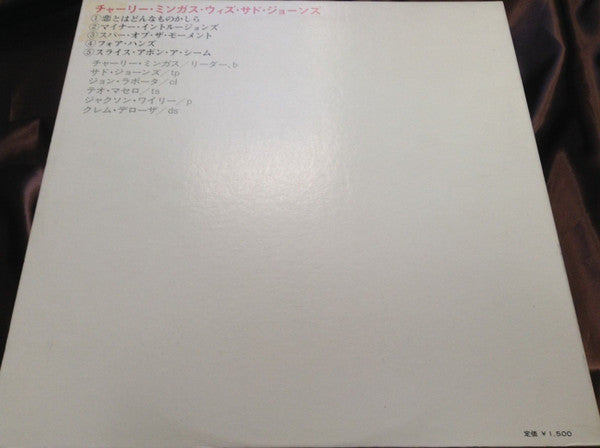 チャーリー・ミンガス・ウィズ・サド・ジョーンズ
①恋とはどんなものかしら
②マイナー・イントルージョンズ
③スパー・オブ・ザ・モーメント
④フォア・ハンズ
⑤スライス・アポン・ア・シーム
チャーリー・ミンガス/リーダー、b
サド・ジョーンズ/tp
ジョン・ラポータ/cl
テオ・マセロ/ts
ジャクソン・ワイリー/p
クレム・デローザ/ds
定価 ¥1,500